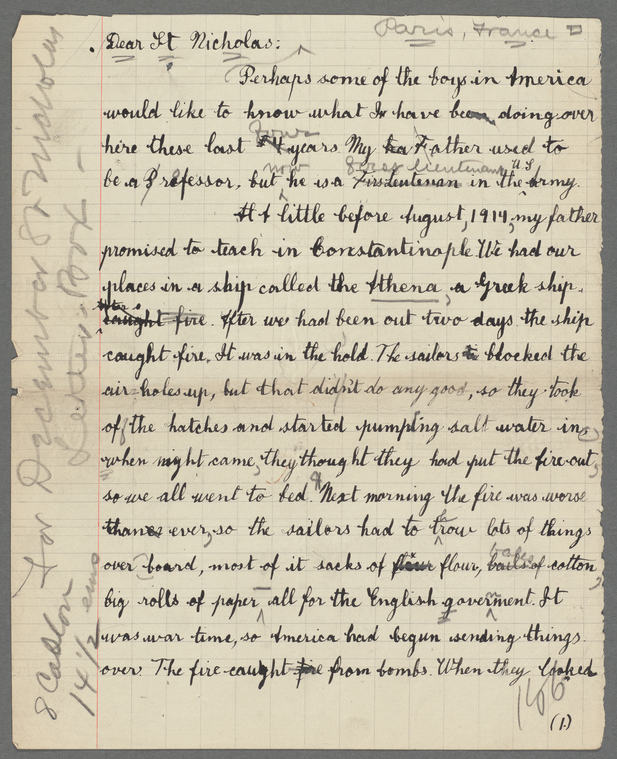 Paris, France
Dear St Nicholas:
Perhaps some of the boys in America
would like to know what I have been doing over
hire these last four years. My Father used to
be a Professor, but now he is a first lieutenant in the U.S Army.
A little before August, 1914, my father
promised to teach in Constantinople. We had our
places in a ship called the Athena, a Greek ship.
caught fire. After we had been out two days the ship
caught fire. It was in the hold. The sailors blocked the
air-holes up, but that didn't do any good, so they took
off the hatches and started pumping salt water in
when night came, they thought they had put the fire out,
so we all went to bed. Next morning the fire was worse
than ever, so the sailors had to throw lots of things
over board, most of it sacks of flour flour, bales of cotton
big rolls of paper all for the English goverment. It
was war time, so America had begun sending things
over. The fire caught fire from bombs. When they looked
166
(1)
For December St Nicholas
Letter-Book -
8 Caslon
14 1/2 ems